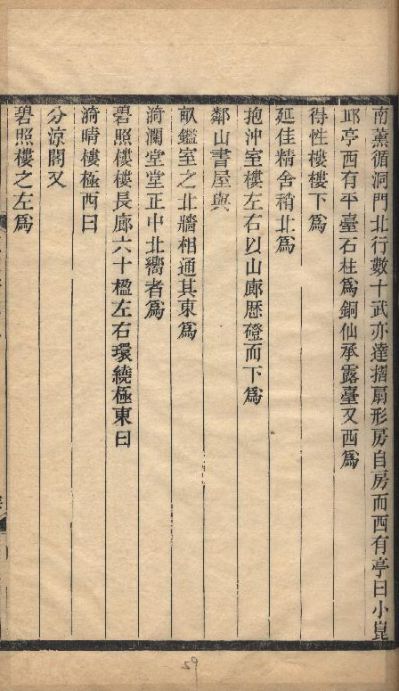 南薰循洞門北行數十武亦達摺扇形房自房而西有亭曰小崑
邱亭西有平臺石柱爲銅仙承露臺又西爲
得性樓樓下爲
延佳精舍稍北爲
抱沖室樓左右以山廊歷磴而下爲
鄰山書屋與
畝鑑室之北牆相通其東爲
漪瀾堂堂正中北嚮者爲
碧照樓樓長廊六十楹左右環繞極東曰
漪晴樓極西曰
分涼閣又
碧照樓之左爲